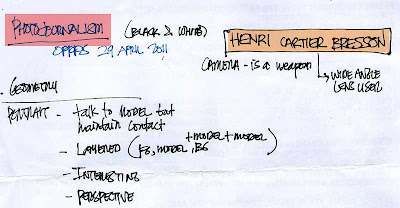 PHOTOJOURNALISM (BLACK & WHITE)
29 APRIL 2011
HENRI CARTIER BRESSON
CAMERA - is a weapon
WIDE ANGLE
LENS USER
. GEOMETRY
PORTRAIT - talk to MODEL but
maintain contact
- LAYERED (FG, MODEL, BG
+ MODEL + MODEL)
- INTERESTING
- PERSPECTIVE